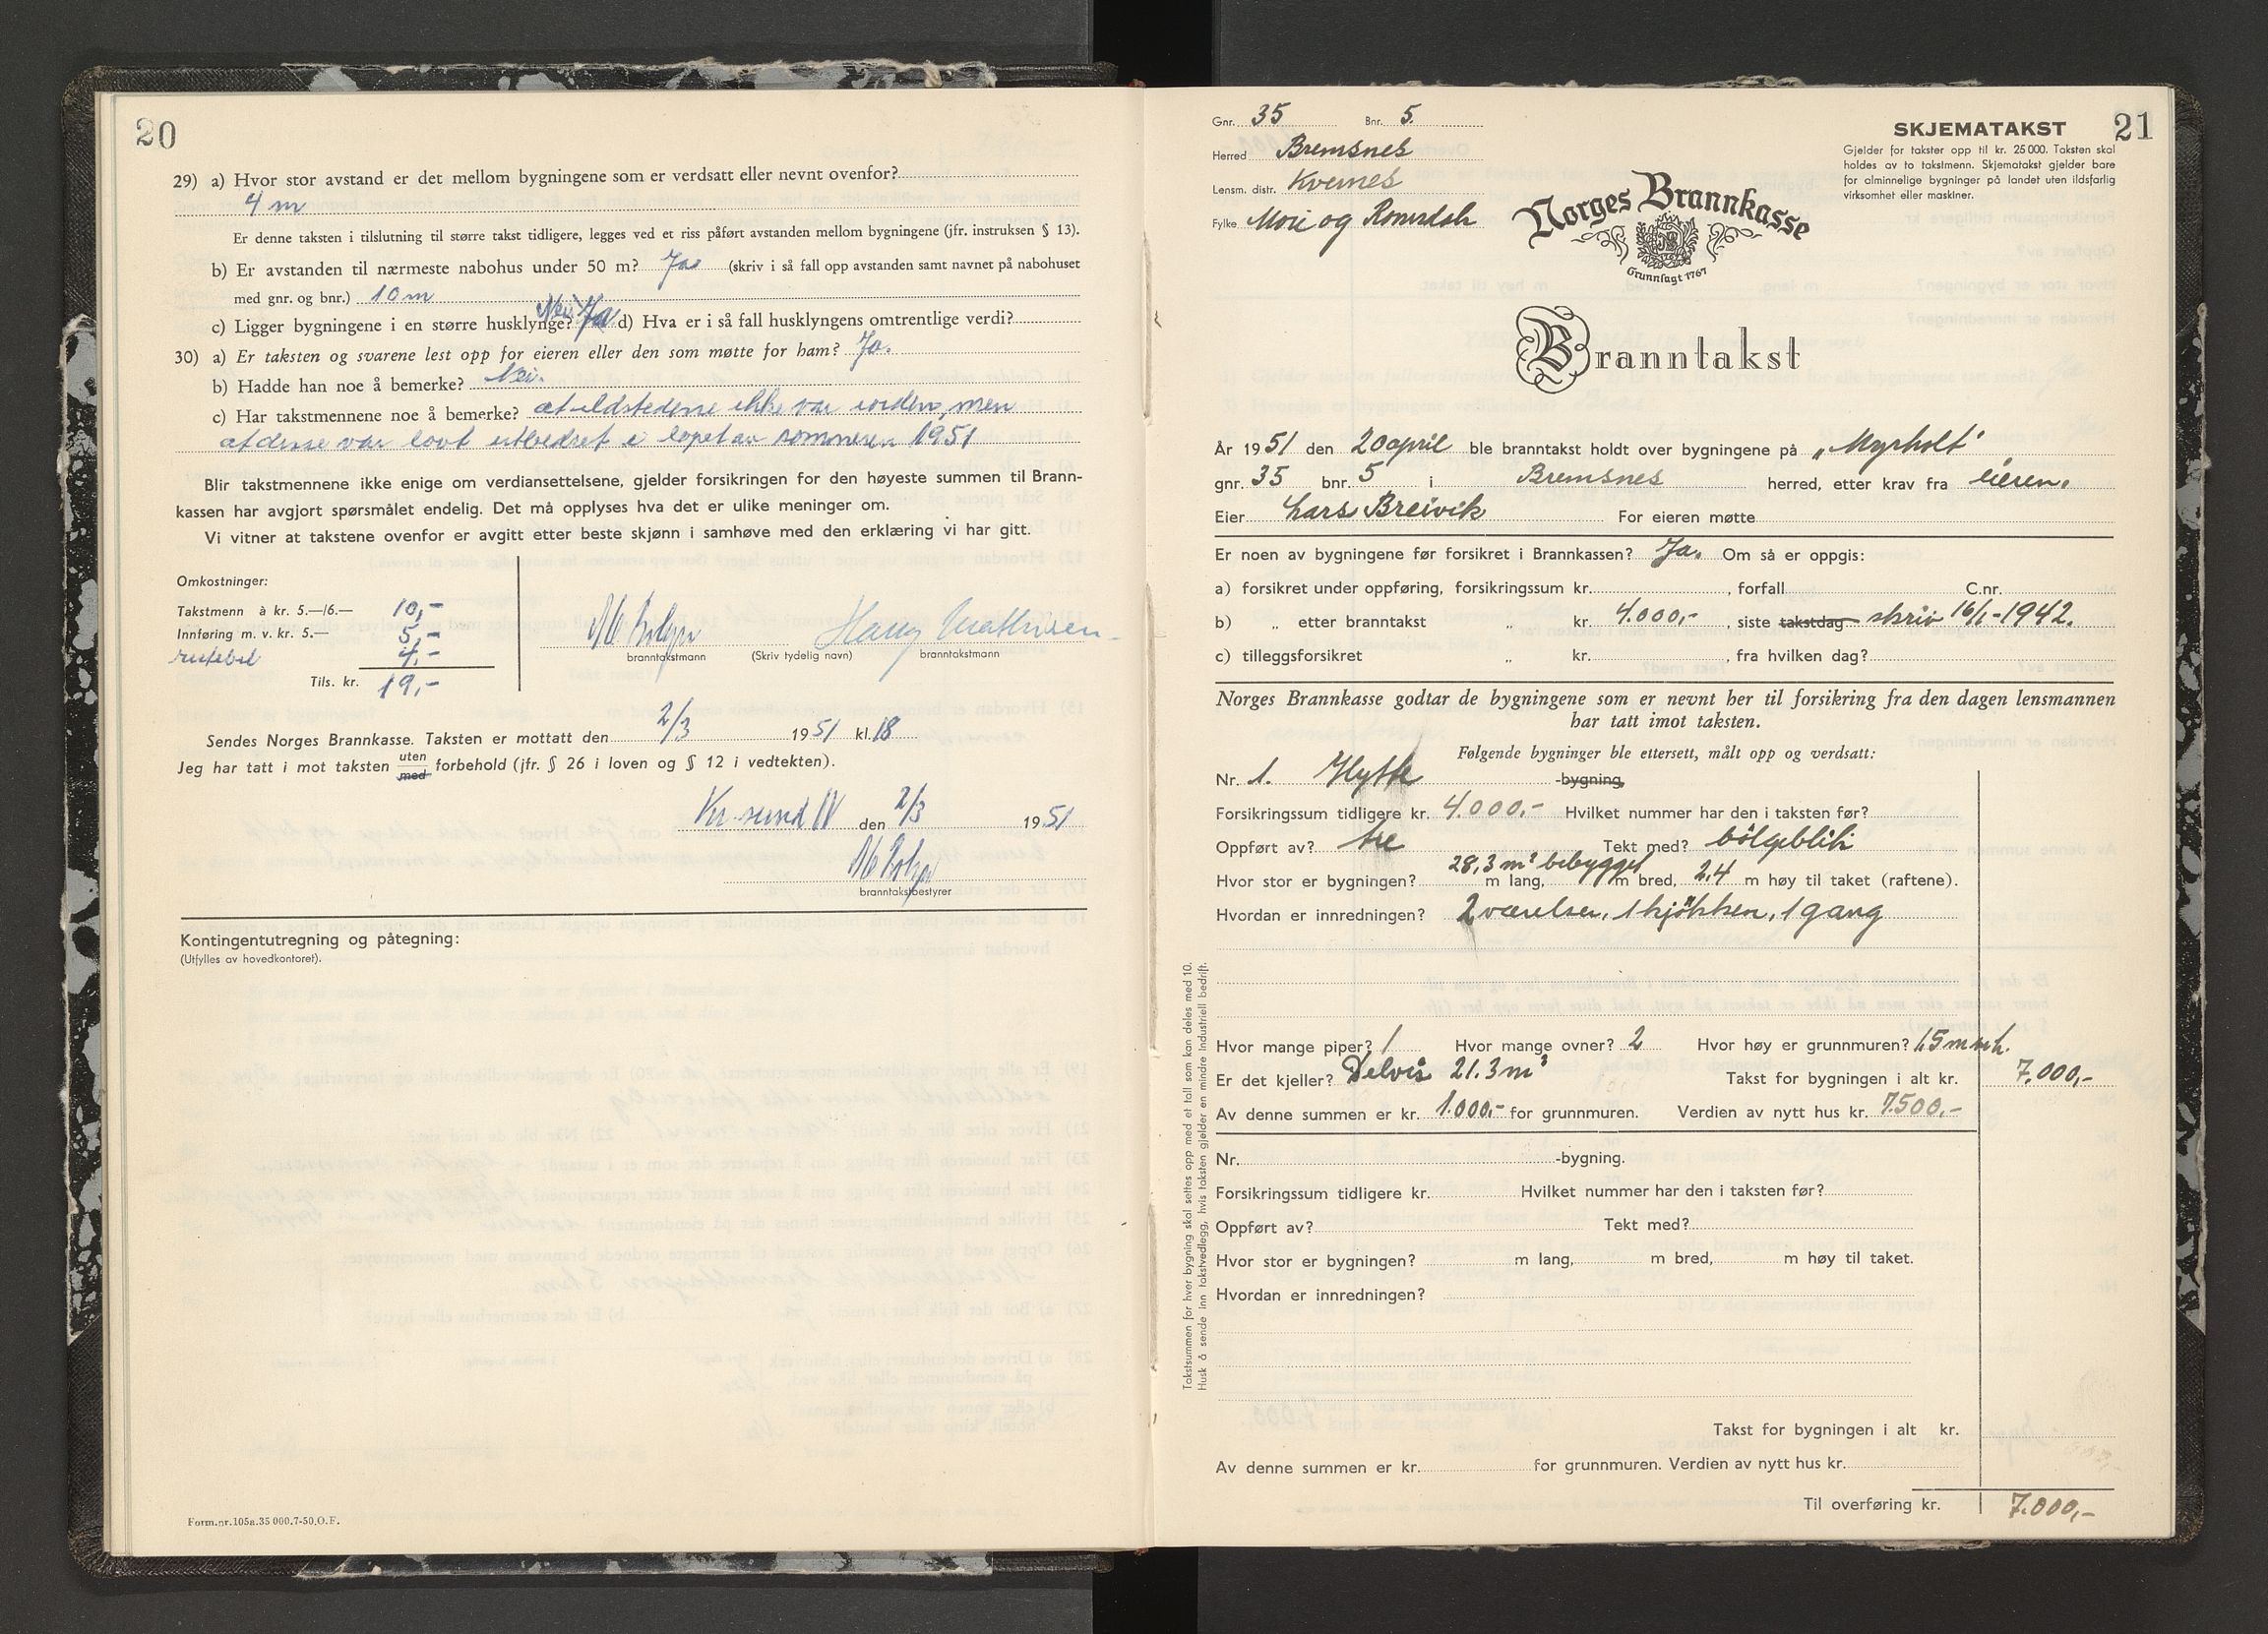 20
29) a) Hvor stor avstand er det mellom bygningene som er verdsatt eller nevnt ovenfor?
4 m
Er denne taksten i tilslutning til større takst tidligere, legges ved et riss påført avstanden mellom bygningene (jfr. instruksen § 13).
b) Er avstanden til nærmeste nabohus under 50 m? Ja (skriv i så fall opp avstanden samt navnet på nabohuset
med gnr. og bnr.) 10 m
c) Ligger bygningene i en større husklynge? Nei Ja d) Hva er i så fall husklyngens omtrentlige verdi?
30) a) Er taksten og svarene lest opp for eieren eller den som møtte for ham? Ja.
b) Hadde han noe å bemerke? Nei.
c) Har takstmennene noe å bemerke? at ildstedene ikke var iorden, men
at desse var lovt utbedret i løpet av sommeren 1951
Blir takstmennene ikke enige om verdiansettelsene, gjelder forsikringen for den høyeste summen til Brann-
kassen har avgjort spørsmålet endelig. Det må opplyses hva det er ulike meninger om.
Vi vitner at takstene ovenfor er avgitt etter beste skjønn i samhøve med den erklæring vi har gitt.
Omkostninger:
Takstmenn à kr. 5.—/6.— 10,-
Innføring m. v. kr. 5.— 5,-
4,-
Tils. kr. 19,-
Harry Mathisen
branntakstmann (Skriv tydelig navn) branntakstmann
Sendes Norges Brannkasse. Taksten er mottatt den 2/3 1951 kl. 18
Jeg har tatt i mot taksten uten med forbehold (jfr. § 26 i loven og § 12 i vedtekten).
Kr. sund N den 2/3 1951
branntakstbestyrer
Kontingentutregning og påtegning:
(Utfylles av hovedkontoret).
Form.nr.105a.35 000.7-50.O.F.
21
Gnr. 35 Bnr. 5.
Herred Bremsnes
Lensm. distr. Kvernes
Fylke Møre og Romsdal
SKJEMATAKST
Gjelder for takster opp til kr. 25 000. Taksten skal
holdes av to takstmenn. Skjematakst gjelder bare
for alminnelige bygninger på landet uten ildsfarlig
virksomhet eller maskiner.
Norges Brannkasse
Grunnlagt 1767
Branntakst
År 1951 den 20 april ble branntakst holdt over bygningene på „Myrholt"
gnr. 35 bnr. 5 i Bremsnes herred, etter krav fra eieren.
Eier Lars Breivik For eieren møtte
Er noen av bygningene før forsikret i Brannkassen? Ja. Om så er oppgis:
a) forsikret under oppføring, forsikringssum kr. , forfall C.nr.
b) „ etter branntakst „ kr. 4.000,- , siste takstdag skriv 16/1-1942.
c) tilleggsforsikret „ kr. , fra hvilken dag?
Norges Brannkasse godtar de bygningene som er nevnt her til forsikring fra den dagen lensmannen
har tatt imot taksten.
Følgende bygninger ble ettersett, målt opp og verdsatt:
Nr. 1. Hytte -bygning.
Forsikringssum tidligere kr. 4.000,- Hvilket nummer har den i taksten før?
Oppført av? tre Tekt med? bölgeblik
28,3 m² bebygget
Hvor stor er bygningen? m lang, m bred, 2,4 m høy til taket (raftene).
Hvordan er innredningen? 2 værelser, 1 kjökken, 1 gang
Hvor mange piper? 1 Hvor mange ovner? 2 Hvor høy er grunnmuren? 1,5 m
Er det kjeller? Delvis 21.3 m³ Takst for bygningen i alt kr. 7.000,-
Av denne summen er kr. 1.000,- for grunnmuren. Verdien av nytt hus kr. 7.500,-
Nr. -bygning.
Forsikringssum tidligere kr. Hvilket nummer har den i taksten før?
Oppført av? Tekt med?
Hvor stor er bygningen? m lang, m bred, m høy til taket.
Hvordan er innredningen?
Takst for bygningen i alt kr.
Av denne summen er kr. for grunnmuren. Verdien av nytt hus kr.
Til overføring kr. 7.000,-
Takstsummen for hver bygning skal settes opp med et tall som kan deles med 10.
Husk å sende inn takstvedlegg, hvis taksten gjelder en mindre industriell bedrift.